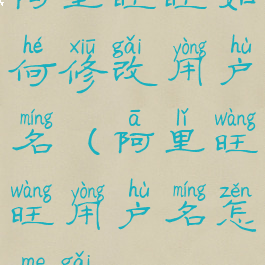 阿里旺旺如
hé xiū gǎi yòng hù
何修改用户
míng ā lǐ wàng
名（阿里旺
wàng yòng hù míng zěn
旺用户名怎
me gǎi